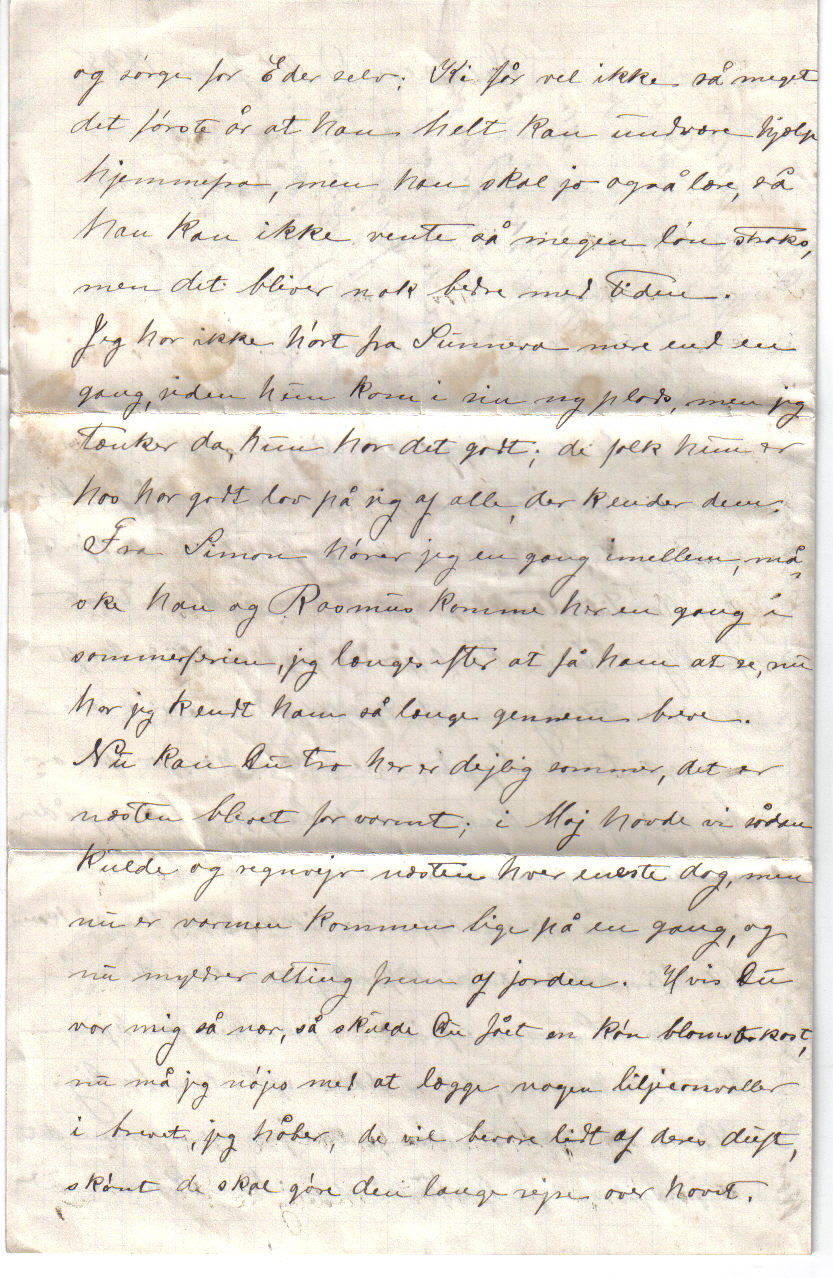 og sørge for Eder selv; Ki får vel ikke så meget
det første år at han helt kan undvære hjælp
hjemmefra, men han skal jo også lære, så
han kan ikke vente så megen løn straks,
men det bliver nok bedre med Tiden.
Jeg har ikke hørt fra Sunneva mere end en
gang, siden hun kom i sin ny plads, men jeg
tænker da, hun har det godt; de folk hun er
hos har godt lov på sig af alle, der kender dem.
Fra Simon hører jeg en gang imellem, må„
ske han og Rasmus komme her en gang i
sommerferien, jeg længes efter at få ham at se, nu
har jeg kendt ham så længe gennem breve.
Nu kan Du tro her er dejlig sommer, det er
næsten blevet for varmt; i Maj havde vi sådan
kulde og regnvejr næsten hver eneste dag, men
nu er varmen kommen lige på en gang, og
nu myldrer alting frem af jorden. Hvis Du
var mig så nær, så skulde Du fået en køn blomsterkost,
nu må jeg nøjes med at lægge nogen liljeconvaller
i brevet, jeg håber, de vil bevare lidt af deres duft,
skønt de skal gøre den lange rejse over havet.